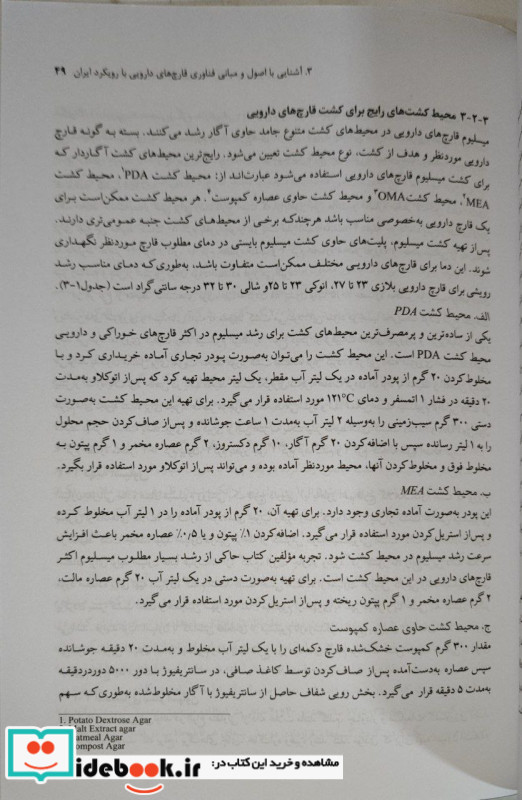 ۳. آشنایی با اصول و مبانی فناوری قارچ‌های دارویی با رویکرد ایران ۴۹
۳-۲-۳ محیط کشت‌های رایج برای کشت قارچ‌های دارویی
میسلیوم قارچ‌های دارویی در محیط‌های کشت متنوع جامد حاوی آگار رشد می‌کنند. بسته به گونه قارچ
دارویی موردنظر و هدف از کشت، نوع محیط کشت تعیین می‌شود. رایج‌ترین محیط‌های کشت آگاردار که
برای کشت میسلیوم قارچ‌های دارویی استفاده می‌شود عبارت‌اند از: محیط کشت PDA۱، محیط کشت
MEA۲، محیط کشت OMA۳ و محیط کشت حاوی عصاره کمپوست۴. هر محیط کشت ممکن‌است برای
یک قارچ دارویی به‌خصوصی مناسب باشد هرچندکه برخی از محیط‌های کشت جنبه عمومی‌تری دارند.
پس‌از تهیه کشت میسلیوم، پلیت‌های حاوی کشت میسلیوم بایستی در دمای مطلوب قارچ موردنظر نگهداری
شوند. این دما برای قارچ‌های دارویی مختلف ممکن‌است متفاوت باشد، به‌طوری‌که دمای مناسب رشد
رویشی برای قارچ دارویی بلازی ۲۳ تا ۲۷، انوکی ۲۳ تا ۲۵و شالی ۳۰ تا ۳۲ درجه سانتی‌گراد است (جدول۱-۳).
الف. محیط کشت PDA
یکی از ساده‌ترین و پرمصرف‌ترین محیط‌های کشت برای رشد میسلیوم در اکثر قارچ‌های خوراکی و دارویی
محیط کشت PDA است. این محیط کشت را می‌توان به‌صورت پودر تجاری آماده خریداری کرد و با
مخلوط‌کردن ۲۰ گرم از پودر آماده در یک لیتر آب مقطر، یک لیتر محیط تهیه کرد که پس‌از اتوکلاو به‌مدت
۲۰ دقیقه در فشار ۱ اتمسفر و دمای ۱۲۱°C مورد استفاده قرار می‌گیرد. برای تهیه این محیط کشت به‌صورت
دستی ۳۰۰ گرم سیب‌زمینی را به‌وسیله ۲ لیتر آب به‌مدت ۱ ساعت جوشانده و پس‌از صاف‌کردن حجم محلول
را به ۱ لیتر رسانده سپس با اضافه‌کردن ۲۰ گرم آگار، ۱۰ گرم دکستروز، ۲ گرم عصاره مخمر و ۱ گرم پپتون به
مخلوط فوق و مخلوط‌کردن آنها، محیط موردنظر آماده بوده و می‌تواند پس‌از اتوکلاو مورد استفاده قرار بگیرد.
ب. محیط کشت MEA
این پودر به‌صورت آماده تجاری وجود دارد. برای تهیه آن، ۲۰ گرم از پودر آماده را در ۱ لیتر آب مخلوط کرده
و پس‌از استریل‌کردن مورد استفاده قرار می‌گیرد. اضافه‌کردن ۱٪ پپتون و یا ۰/۵٪ عصاره مخمر باعث افزایش
سرعت رشد میسلیوم در محیط کشت شود. تجربه مؤلفین کتاب حاکی از رشد بسیار مطلوب میسلیوم اکثر
قارچ‌های دارویی در این محیط کشت است. برای تهیه به‌صورت دستی در یک لیتر آب ۲۰ گرم عصاره مالت،
۲ گرم عصاره مخمر و ۱ گرم پپتون ریخته و پس‌از استریل‌کردن مورد استفاده قرار می‌گیرد.
ج. محیط کشت حاوی عصاره کمپوست
مقدار ۳۰۰ گرم کمپوست خشک‌شده قارچ دکمه‌ای را با یک لیتر آب مخلوط و به‌مدت ۲۰ دقیقه جوشانده
سپس عصاره به‌دست‌آمده پس‌از صاف‌کردن توسط کاغذ صافی، در سانتریفیوژ با دور ۵۰۰۰ دوردردقیقه
به‌مدت ۵ دقیقه قرار می‌گیرد. بخش رویی شفاف حاصل از سانتریفیوژ با آگار مخلوط‌شده به‌طوری‌که سهم
1. Potato Dextrose Agar
alt Extract agar
atmeal Agar
ompost Agar
مشاهده و خرید این کتاب در:
iidebook.ir